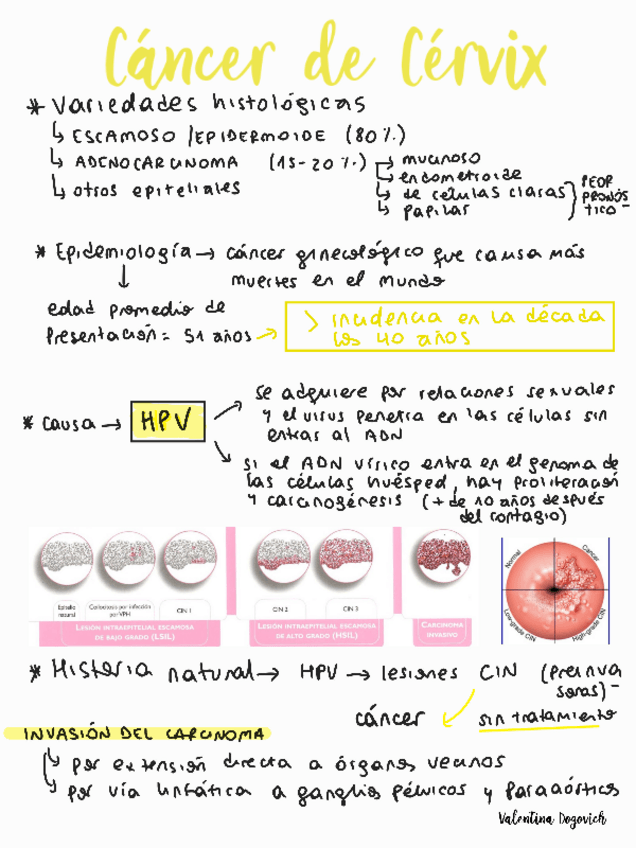 Cáncer de Cérvix
* Variedades histológicas
↳ ESCAMOSO / EPIDERMOIDE (80%)
↳ ADENOCARCINOMA (15-20%) → mucinoso
↳ endometroide
↳ otros epiteliales
↳ de células claras
↳ papilar
PEOR
PRONÓS-
TICO
* Epidemiología → cáncer ginecológico que causa más
muertes en el mundo
↓
edad promedio de
Presentación = 51 años →
> incidencia en la década
los 40 años
* Causa → HPV
se adquiere por relaciones sexuales
y el virus penetra en las células sin
entrar al ADN
si el ADN vírico entra en el genoma de
las células huésped, hay proliferación
y carcinogénesis (+ de 10 años después
del contagio)
Epitelio
normal
Coilocitosis por infección
por VPH
CIN 1
CIN 2
CIN 3
LESIÓN INTRAEPITELIAL ESCAMOSA
DE BAJO GRADO (LSIL)
LESIÓN INTRAEPITELIAL ESCAMOSA
DE ALTO GRADO (HSIL)
CARCINOMA
INVASIVO
Normal
Cancer
Low-grade CIN
High-grade CIN
* Historia natural → HPV → lesiones CIN (preinva-
soras)
cáncer
sin tratamiento
INVASIÓN DEL CARCINOMA
↳ por extensión directa a órganos vecinos
↳ por vía linfática a ganglios pélvicos y paraaórticos
Valentina Dogovich